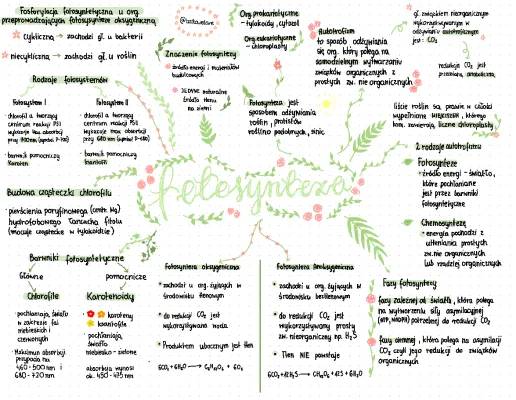 Fosforylacja fotosyntetyczna u org.
przeprowadzających fotosyntezę oksygeniczną
cykliczną → zachodzi gł. u bakterii
niecykliczną → zachodzi gł. u roślin
Rodzaje fotosystemów
Fotosystem I
chlorofil a tworzący
centrum reakcji PSI
wykazuje max absorbcji
przy 700 nm (symbol P-700)
barwnik pomocniczy
Karoten
Fotosystem II
chlorofil a tworzący
centrum reakcji PSII
wykazuje max absorbcji
przy 680 nm (symbol P-680)
barwnik pomocniczy
ksantofil
Budowa cząsteczki chlorofilu
pierścienia porfirynowego (centr. Mg)
hydrofobowego łańcucha fitolu
(mocuje cząsteczkę w tylakoidzie)
Barwniki fotosyntetyczne
Główne
pomocnicze
Chlorofile
pochłaniają światło
w zakresie fal
niebieskich i
czerwonych
Maksimum absorbcji
przypada na
Karotenoidy
karoteny
ksantofile
pochłaniają
światło
niebiesko-zielone
absorbcja wynosi
ok. 450-475 nm
Znaczenie fotosyntezy
źródło energii i materiałów
budulcowych
JEDYNE naturalne
źródło tlenu
na ziemi
Org. prokariotyczne
- tylakoidy, cytozol
Org. eukariotyczne
- chloroplasty
Fotosynteza jest
sposobem odżywiania
roślin, protistów
roślinopodobnych, sinic
Autotrofizm
to sposób odżywiania
się org. który polega na
samodzielnym wytwarzaniu
związków organicznych z
prostych zw. nieorganicznych
gł. związkiem nieorganicznym
wykorzystywanym w
odżywianiu autotroficznym
jest: CO₂
redukcja CO₂ jest
przemianą anaboliczną
liście roślin są prawie w całości
wypełnione miękiszem, którego
kom. zawierają liczne chloroplasty
2 rodzaje autotrofizmu
Fotosynteza
źródło energii - światło,
które pochłaniane
jest przez barwniki
fotosyntetyczne
Chemosynteza
energia pochodzi z
utleniania prostych
zw. nie organicznych
lub rzadziej organicznych
fotosynteza
Fotosynteza oksygeniczna
zachodzi u org. żyjących w
środowisku tlenowym
do redukcji CO₂ jest
wykorzystywana woda
Produktem ubocznym jest tlen
6CO₂ + 6H₂O → C₆H₁₂O₆ + 6O₂
Fotosynteza anoksygeniczna
zachodzi u org. żyjących w
środowisku beztlenowym
do redukcji CO₂ jest
wykorzystywany prosty
zw. nieorganiczny np. H₂S
Tlen NIE powstaje
6CO₂ + 12H₂S → C₆H₁₂O₆ + 12S + 6H₂O
Fazy fotosyntezy
fazy zależnej od światła, która polega
na wytworzeniu siły asymilacyjnej
(ATP, NADPH) potrzebnej do redukcji CO₂
fazy ciemnej, która polega na asymilacji
CO₂ czyli jego redukcji do związków
organicznych